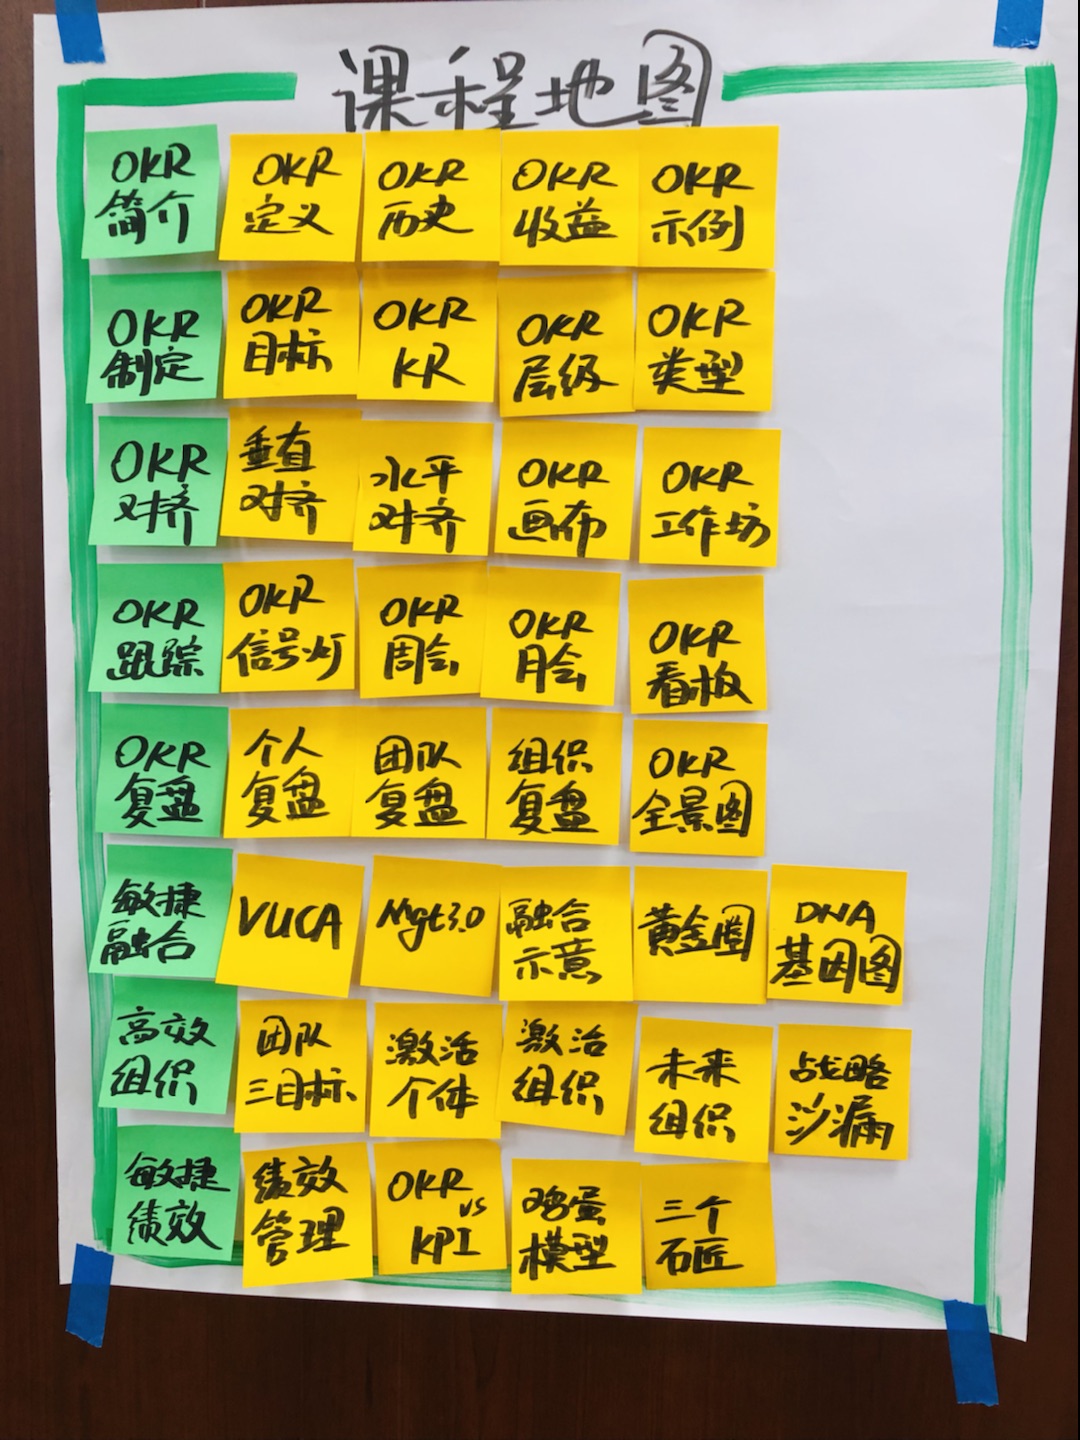 课程地图
OKR
简介
OKR
定义
OKR
历史
OKR
收益
OKR
示例
OKR
制定
OKR
目标
OKR
KR
OKR
层级
OKR
类型
OKR
对齐
垂直
对齐
水平
对齐
OKR
画布
OKR
工作坊
OKR
跟踪
OKR
信号灯
OKR
周会
OKR
月会
OKR
看板
OKR
复盘
个人
复盘
团队
复盘
组织
复盘
OKR
全景图
敏捷
融合
VUCA
Mgt3.0
融合
示意
黄金圈
DNA
基因图
高效
组织
团队
三目标
激活
个体
激活
组织
未来
组织
战略
沙漏
敏捷
绩效
绩效
管理
OKR
vs
KPI
鸡蛋
模型
三个
石匠